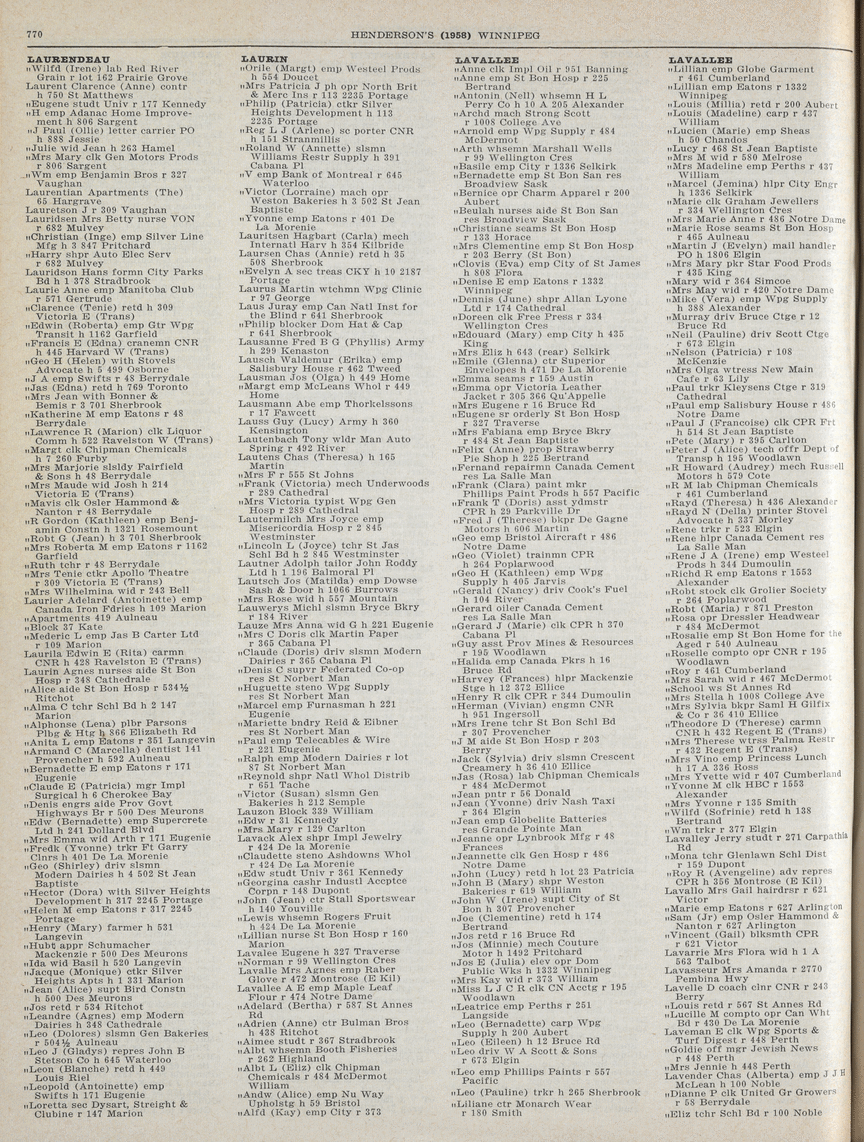 770
HENDERSON'S (1958) WINNIPEG
LAURENDEAU
"Wilfd (Irene) lab Red River
Grain r lot 162 Prairie Grove
Laurent Clarence (Anne) contr
h 750 St Matthews
"Eugene studt Univ r 177 Kennedy
"H emp Adanac Home Improve-
ment h 806 Sargent
"J Paul (Ollie) letter carrier PO
h 888 Jessie
"Julie wid Jean h 263 Hamel
"Mrs Mary clk Gen Motors Prods
r 806 Sargent
"Wm emp Benjamin Bros r 327
Vaughan
Laurentian Apartments (The)
65 Hargrave
Lauretson J r 309 Vaughan
Lauridsen Mrs Betty nurse VON
r 682 Mulvey
"Christian (Inge) emp Silver Line
Mfg h 3 847 Pritchard
"Harry shpr Auto Elec Serv
r 682 Mulvey
Lauridson Hans formn City Parks
Bd h 1 378 Stradbrook
Laurie Anne emp Manitoba Club
r 571 Gertrude
"Clarence (Tenie) retd h 309
Victoria E (Trans)
"Edwin (Roberta) emp Gtr Wpg
Transit h 1162 Garfield
"Francis E (Edna) cranemn CNR
h 445 Harvard W (Trans)
"Geo H (Helen) with Stovels
Advocate h 5 499 Osborne
"J A emp Swifts r 48 Berrydale
"Jas (Edna) retd h 769 Toronto
"Mrs Jean with Bonner &
Bemis r 3 701 Sherbrook
"Katherine M emp Eatons r 48
Berrydale
"Lawrence R (Marion) clk Liquor
Comm h 522 Ravelston W (Trans)
"Margt clk Chipman Chemicals
h 7 260 Furby
"Mrs Marjorie slsldy Fairfield
& Sons h 48 Berrydale
"Mrs Maude wid Josh h 214
Victoria E (Trans)
"Mavis clk Osler Hammond &
Nanton r 48 Berrydale
"R Gordon (Kathleen) emp Benj-
amin Constn h 1321 Rosemount
"Robt G (Jean) h 3 701 Sherbrook
"Mrs Roberta M emp Eatons r 1162
Garfield
"Ruth tchr r 48 Berrydale
"Mrs Tenie ctkr Apollo Theatre
r 309 Victoria E (Trans)
"Mrs Wilhelmina wid r 243 Bell
Laurier Adelard (Antoinette) emp
Canada Iron Fdries h 109 Marion
"Apartments 419 Aulneau
"Block 37 Kate
"Mederic L emp Jas B Carter Ltd
r 109 Marion
Laurila Edwin E (Rita) carmn
CNR h 428 Ravelston E (Trans)
Laurin Agnes nurses aide St Bon
Hosp r 348 Cathedrale
"Alice aide St Bon Hosp r 534½
Ritchot
"Alma C tchr Schl Bd h 2 147
Marion
"Alphonse (Lena) plbr Parsons
Plbg & Htg h 866 Elizabeth Rd
"Anita L emp Eatons r 351 Langevin
"Armand C (Marcella) dentist 141
Provencher h 592 Aulneau
"Bernadette E emp Eatons r 171
Eugenie
"Claude E (Patricia) mgr Impl
Surgical h 6 Cherokee Bay
"Denis engrs aide Prov Govt
Highways Br r 500 Des Meurons
"Edw (Bernadette) emp Supercrete
Ltd h 241 Dollard Blvd
"Mrs Emma wid Arth r 171 Eugenie
"Fredk (Yvonne) trkr Ft Garry
Clnrs h 401 De La Morenie
"Geo (Shirley) driv slsmn
Modern Dairies h 4 502 St Jean
Baptiste
"Hector (Dora) with Silver Heights
Development h 317 2245 Portage
"Helen M emp Eatons r 317 2245
Portage
"Henry (Mary) farmer h 531
Langevin
"Hubt appr Schumacher
Mackenzie r 500 Des Meurons
"Ida wid Basil h 520 Langevin
"Jacque (Monique) ctkr Silver
Heights Apts h 1 331 Marion
"Jean (Alice) supt Bird Constn
h 500 Des Meurons
"Jos retd r 534 Ritchot
"Leandre (Agnes) emp Modern
Dairies h 348 Cathedrale
"Leo (Dolores) slsmn Gen Bakeries
r 504½ Aulneau
"Leo J (Gladys) repres John B
Stetson Co h 645 Waterloo
"Leon (Blanche) retd h 449
Louis Riel
"Leopold (Antoinette) emp
Swifts h 171 Eugenie
"Loretta sec Dysart, Streight &
Clubine r 147 Marion
LAURIN
"Orile (Margt) emp Westeel Prods
h 554 Doucet
"Mrs Patricia J ph opr North Brit
& Merc Ins r 113 2235 Portage
"Philip (Patricia) ctkr Silver
Heights Development h 113
2235 Portage
"Reg L J (Arlene) sc porter CNR
h 151 Stranmillis
"Roland W (Annette) slsmn
Williams Restr Supply h 391
Cabana Pl
"V emp Bank of Montreal r 645
Waterloo
"Victor (Lorraine) mach opr
Weston Bakeries h 3 502 St Jean
Baptiste
"Yvonne emp Eatons r 401 De
La Morenie
Lauritsen Hagbart (Carla) mech
Internatl Harv h 354 Kilbride
Laursen Chas (Annie) retd h 35
508 Sherbrook
"Evelyn A sec treas CKY h 10 2187
Portage
Laurus Martin wtchmn Wpg Clinic
r 97 George
Laus Juray emp Can Natl Inst for
the Blind r 641 Sherbrook
"Philip blocker Dom Hat & Cap
r 641 Sherbrook
Lausanne Fred B G (Phyllis) Army
h 299 Kenaston
Lausch Waldemur (Erika) emp
Salisbury House r 462 Tweed
Lausman Jos (Olga) h 449 Home
"Margt emp McLeans Whol r 449
Home
Lausmann Abe emp Thorkelssons
r 17 Fawcett
Lauss Guy (Lucy) Army h 360
Kensington
Lautenbach Tony wldr Man Auto
Spring r 492 River
Lautens Chas (Theresa) h 165
Martin
"Mrs F r 555 St Johns
"Frank (Victoria) mech Underwoods
r 289 Cathedral
"Mrs Victoria typist Wpg Gen
Hosp r 289 Cathedral
Lautermilch Mrs Joyce emp
Misericordia Hosp r 2 845
Westminster
"Lincoln L (Joyce) tchr St Jas
Schl Bd h 2 845 Westminster
Lautner Adolph tailor John Roddy
Ltd h 1 196 Balmoral Pl
Lautsch Jos (Matilda) emp Dowse
Sash & Door h 1066 Burrows
"Mrs Rose wid h 557 Mountain
Lauwerys Michl slsmn Bryce Bkry
r 184 River
Lauze Mrs Anna wid G h 221 Eugenie
"Mrs C Doris clk Martin Paper
r 365 Cabana Pl
"Claude (Doris) driv slsmn Modern
Dairies r 365 Cabana Pl
"Denis C supvr Federated Co-op
res St Norbert Man
"Huguette steno Wpg Supply
res St Norbert Man
"Marcel emp Furnasman h 221
Eugenie
"Mariette bndry Reid & Eibner
res St Norbert Man
"Paul emp Telecables & Wire
r 221 Eugenie
"Ralph emp Modern Dairies r lot
87 St Norbert Man
"Reynold shpr Natl Whol Distrib
r 651 Tache
"Victor (Susan) slsmn Gen
Bakeries h 212 Semple
Lauzon Block 339 William
"Edw r 31 Kennedy
"Mrs Mary r 129 Carlton
Lavack Alex shpr Impl Jewelry
r 424 De la Morenie
"Claudette steno Ashdowns Whol
r 424 De La Morenie
"Edw studt Univ r 361 Kennedy
"Georgina cashr Industl Accptce
Corpn r 148 Dupont
"John (Jean) ctr Stall Sportswear
h 140 Youville
"Lewis whsemn Rogers Fruit
h 424 De La Morenie
"Lillian nurse St Bon Hosp r 160
Marion
Lavalee Eugene h 327 Traverse
"Norman r 99 Wellington Cres
Lavalle Mrs Agnes emp Raber
Glove r 472 Montrose (E Kil)
Lavallee A E emp Maple Leaf
Flour r 474 Notre Dame
"Adelard (Bertha) r 587 St Annes
Rd
"Adrien (Anne) ctr Bulman Bros
h 438 Ritchot
"Aimee studt r 367 Stradbrook
"Albt whsemn Booth Fisheries
r 262 Highland
"Albt L (Eliz) clk Chipman
Chemicals r 484 McDermot
William
"Andw (Alice) emp Nu Way
Upholstg h 59 Bristol
"Alfd (Kay) emp City r 373
LAVALLEE
"Anne clk Impl Oil r 951 Banning
"Anne emp St Bon Hosp r 225
Bertrand
"Antonin (Nell) whsemn H L
Perry Co h 10 A 205 Alexander
"Archd mach Strong Scott
r 1008 College Ave
"Arnold emp Wpg Supply r 484
McDermot
"Arth whsemn Marshall Wells
r 99 Wellington Cres
"Basile emp City r 1336 Selkirk
"Bernadette emp St Bon San res
Broadview Sask
"Bernice opr Charm Apparel r 200
Aubert
"Beulah nurses aide St Bon San
res Broadview Sask
"Christiane seams St Bon Hosp
r 133 Horace
"Mrs Clementine emp St Bon Hosp
r 203 Berry (St Bon)
"Clovis (Eva) emp City of St James
h 808 Flora
"Denise E emp Eatons r 1332
Winnipeg
"Dennis (June) shpr Allan Lyone
Ltd r 174 Cathedral
"Doreen clk Free Press r 334
Wellington Cres
"Edouard (Mary) emp City h 435
King
"Mrs Eliz h 643 (rear) Selkirk
"Emile (Glenna) ctr Superior
Envelopes h 471 De La Morenie
"Emma seams r 159 Austin
"Emma opr Victoria Leather
Jacket r 305 366 Qu'Appelle
"Mrs Eugene r 16 Bruce Rd
"Eugene sr orderly St Bon Hosp
r 327 Traverse
"Mrs Fabiana emp Bryce Bkry
r 484 St Jean Baptiste
"Felix (Anne) prop Strawberry
Pie Shop h 225 Bertrand
"Fernand repairmn Canada Cement
res La Salle Man
"Frank (Clara) paint mkr
Phillips Paint Prods h 557 Pacific
"Frank T (Doris) asst ydmstr
CPR h 29 Parkville Dr
"Fred J (Therese) bkpr De Gagne
Motors h 606 Martin
"Geo emp Bristol Aircraft r 486
Notre Dame
"Geo (Violet) trainmn CPR
h 264 Poplarwood
"Geo H (Kathleen) emp Wpg
Supply h 405 Jarvis
"Gerald (Nancy) driv Cook's Fuel
h 104 River
"Gerard oiler Canada Cement
res La Salle Man
"Gerard J (Marie) clk CPR h 370
Cabana Pl
"Guy asst Prov Mines & Resources
r 195 Woodlawn
"Halida emp Canada Pkrs h 16
Bruce Rd
"Harvey (Frances) hlpr Mackenzie
Stge h 12 372 Ellice
"Henry R clk CPR r 344 Dumoulin
"Herman (Vivian) engmn CNR
h 951 Ingersoll
"Mrs Irene tchr St Bon Schl Bd
r 307 Provencher
"J M aide St Bon Hosp r 203
Berry
"Jack (Sylvia) driv slsmn Crescent
Creamery h 36 410 Ellice
"Jas (Rosa) lab Chipman Chemicals
r 484 McDermot
"Jean pntr r 56 Donald
"Jean (Yvonne) driv Nash Taxi
r 364 Elgin
"Jean emp Globelite Batteries
res Grande Pointe Man
"Jeanne opr Lynbrook Mfg r 48
Frances
"Jeannette clk Gen Hosp r 486
Notre Dame
"John (Lucy) retd h lot 23 Patricia
"John B (Mary) shpr Weston
Bakeries r 619 William
"John W (Irene) supt City of St
Bon h 307 Provencher
"Joe (Clementine) retd h 174
Bertrand
"Jos retd r 16 Bruce Rd
"Jos (Minnie) mech Couture
Motor h 1492 Pritchard
"Jos E (Julia) elev opr Dom
Public Wks h 1332 Winnipeg
"Mrs Kay wid r 373 William
"Miss L J C R clk CN Acctg r 195
Woodlawn
"Leatrice emp Perths r 251
Langside
"Leo (Bernadette) carp Wpg
Supply h 200 Aubert
"Leo (Eileen) h 12 Bruce Rd
"Leo driv W A Scott & Sons
r 673 Elgin
"Leo emp Phillips Paints r 557
Pacific
"Leo (Pauline) trkr h 265 Sherbrook
"Liliane ctr Monarch Wear
r 180 Smith
LAVALLEE
"Lillian emp Globe Garment
r 461 Cumberland
"Lillian emp Eatons r 1332
Winnipeg
"Louis (Millia) retd r 200 Aubert
"Louis (Madeline) carp r 437
William
"Lucien (Marie) emp Sheas
h 50 Chandos
"Lucy r 468 St Jean Baptiste
"Mrs M wid r 580 Melrose
"Mrs Madeline emp Perths r 437
William
"Marcel (Jemina) hlpr City Engr
h 1336 Selkirk
"Marie clk Graham Jewellers
r 334 Wellington Cres
"Mrs Marie Anne r 486 Notre Dame
"Marie Rose seams St Bon Hosp
r 465 Aulneau
"Martin J (Evelyn) mail handler
PO h 1806 Elgin
"Mrs Mary pkr Star Food Prods
r 435 King
"Mary wid r 364 Simcoe
"Mrs May wid r 420 Notre Dame
"Mike (Vera) emp Wpg Supply
h 388 Alexander
"Murray driv Bruce Ctge r 12
Bruce Rd
"Neil (Pauline) driv Scott Ctge
r 673 Elgin
"Nelson (Patricia) r 108
McKenzie
"Mrs Olga wtress New Main
Cafe r 63 Lily
"Paul trkr Kleysens Ctge r 319
Cathedral
"Paul emp Salisbury House r 486
Notre Dame
"Paul J (Francoise) clk CPR Frt
h 514 St Jean Baptiste
"Pete (Mary) r 395 Carlton
"Peter J (Alice) tech offr Dept of
Transp h 195 Woodlawn
"R Howard (Audrey) mech Russell
Motors h 579 Cote
"R M lab Chipman Chemicals
r 461 Cumberland
"Rayd (Theresa) h 436 Alexander
"Rayd N (Della) printer Stovel
Advocate h 337 Morley
"Rene trkr r 523 Elgin
"Rene hlpr Canada Cement res
La Salle Man
"Rene J A (Irene) emp Westeel
Prods h 344 Dumoulin
"Richd R emp Eatons r 1553
Alexander
"Robt stock clk Grolier Society
r 264 Poplarwood
"Robt (Maria) r 871 Preston
"Rosa opr Dressler Headwear
r 484 McDermot
"Rosalie emp St Bon Home for the
Aged r 540 Aulneau
"Roselle compto opr CNR r 195
Woodlawn
"Roy r 461 Cumberland
"Mrs Sarah wid r 467 McDermot
"School ws St Annes Rd
"Mrs Stella h 1008 College Ave
"Mrs Sylvia bkpr Saml H Gilfix
& Co r 36 410 Ellice
"Theodore D (Therese) carmn
CNR h 432 Regent E (Trans)
"Mrs Therese wtrss Palma Restr
r 432 Regent E (Trans)
"Mrs Vino emp Princess Lunch
h 17 A 336 Ross
"Mrs Yvette wid r 407 Cumberland
"Yvonne M clk HBC r 1553
Alexander
"Mrs Yvonne r 135 Smith
"Wilfd (Sofrinie) retd h 138
Bertrand
"Wm trkr r 377 Elgin
Lavalley Jerry studt r 271 Carpathia
Rd
"Mona tchr Glenlawn Schl Dist
r 159 Dupont
"Roy R (Avengeline) adv repres
CPR h 356 Montrose (E Kil)
Lavallo Mrs Gail hairdrsr r 621
Victor
"Marie emp Eatons r 627 Arlington
"Sam (Jr) emp Osler Hammond &
Nanton r 627 Arlington
"Vincent (Gail) blksmth CPR
r 621 Victor
Lavarrie Mrs Flora wid h 1 A
563 Talbot
Lavasseur Mrs Amanda r 2770
Pembina Hwy
Lavelle D coach clnr CNR r 243
Berry
"Louis retd r 567 St Annes Rd
"Lucille M compto opr Can Wht
Bd r 430 De La Morenie
Laveman E clk Wpg Sports &
Turf Digest r 448 Perth
"Goldie off mgr Jewish News
r 448 Perth
"Mrs Jennie h 448 Perth
Lavender Chas (Alberta) emp J J H
McLean h 100 Noble
"Dianne P clk United Gr Growers
r 58 Berrydale
"Eliz tchr Schl Bd r 100 Noble